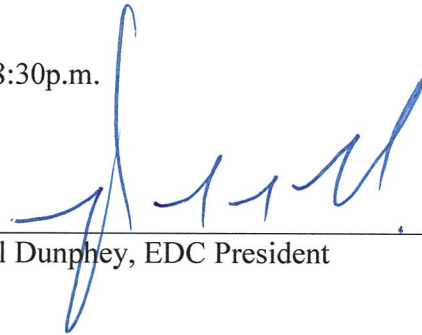 8:30p.m.
l Dunphey, EDC President